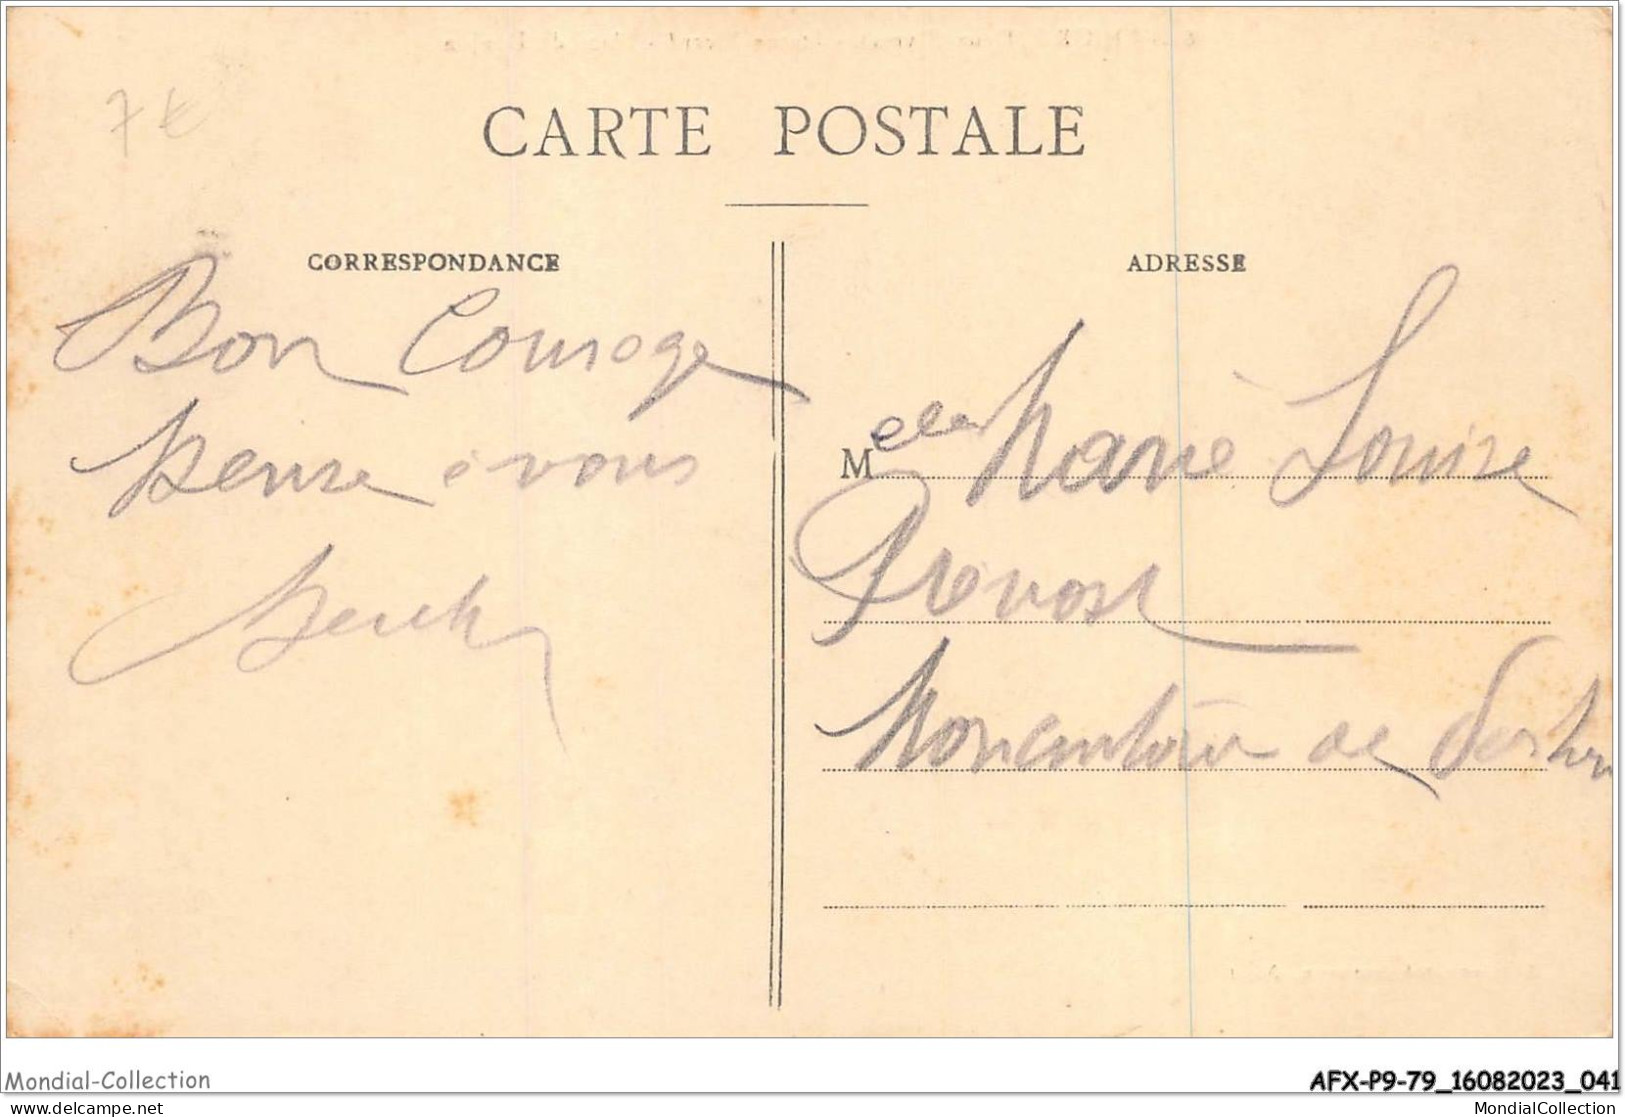 7 €
CARTE POSTALE
CORRESPONDANCE
Bon Courage
pense à vous
ADRESSE
Melle Marie Louise
Prevost
de
Mondial-Collection
AFX-P9-79_16082023_041
delcampe.net
MondialCollection